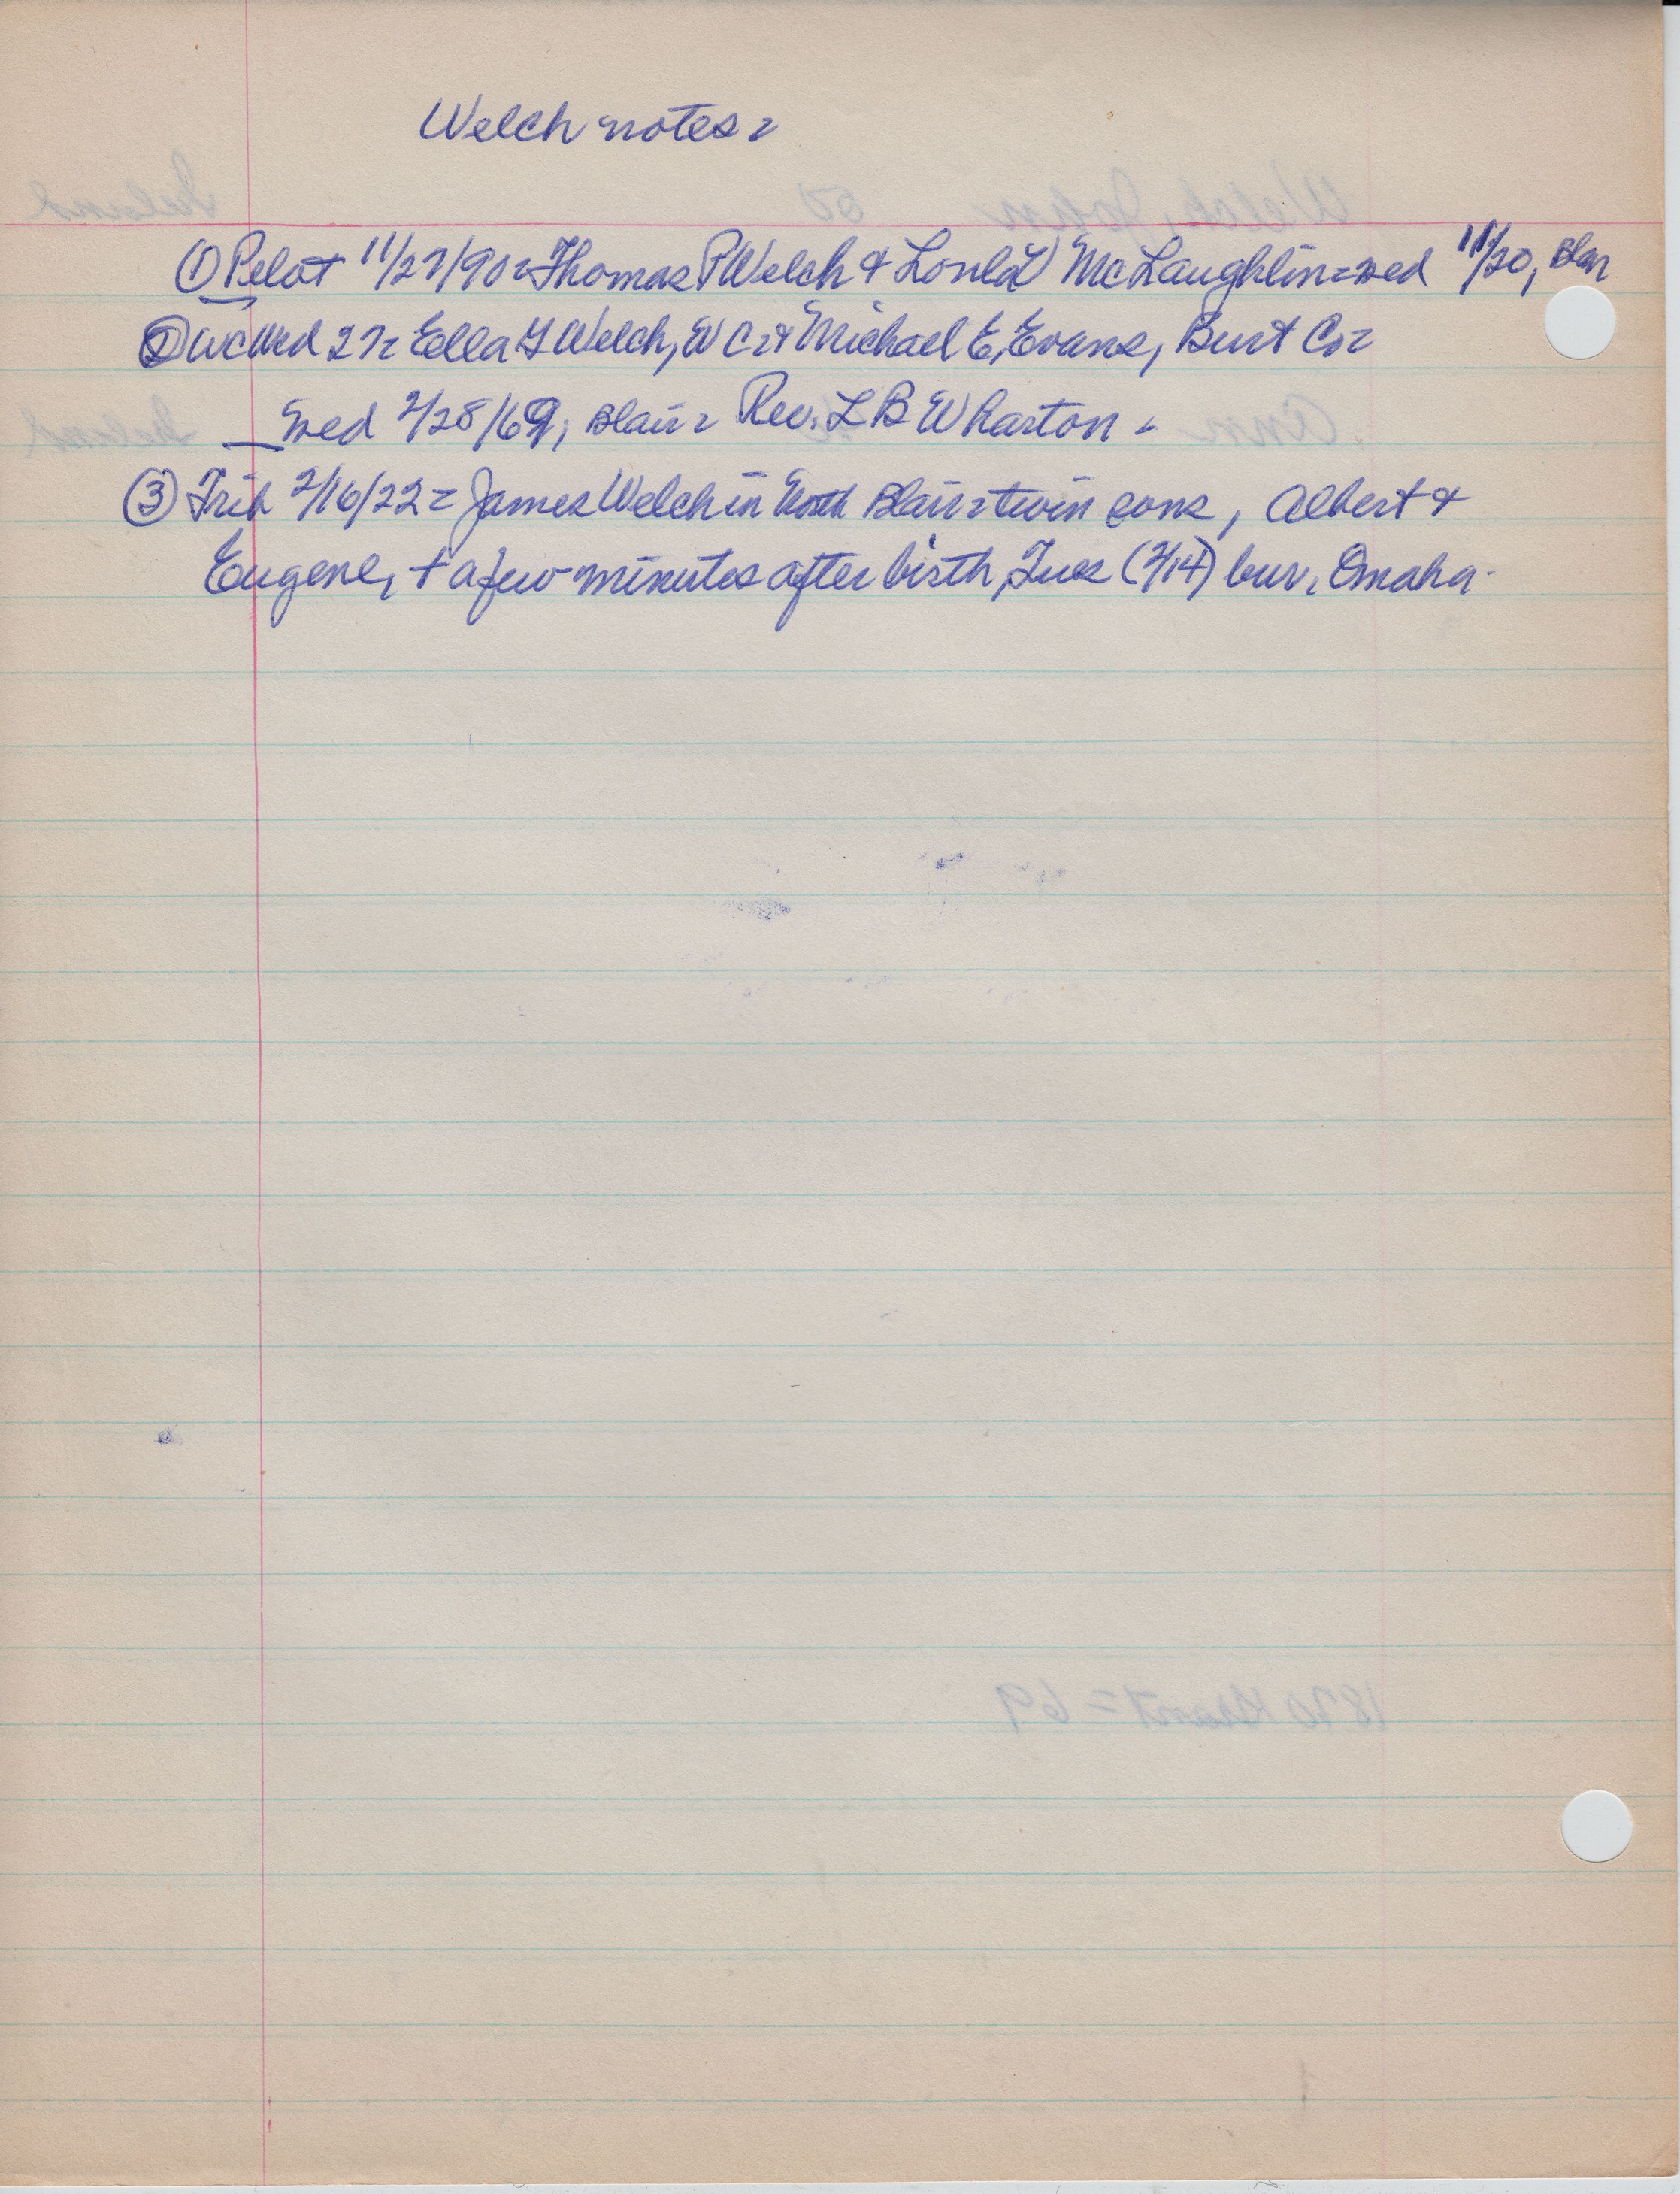 Welch notes =
① Pilot 11/27/90 = Thomas P Welch & McLaughlin = wed 11/20, Blair
② WC Wed = Ella Welch, WC = & Michael E, Evans, Burt Co =
wed 2/28/69, Blair = Rev. L B Wharton =
③ Trib 2/16/22 = James Welch in North Blair = twin sons, Albert &
Eugene, + a few minutes after birth, Tues (2/14) bur, Omaha -
Welch, John 50 Ireland
Ann Ireland
1870 = 69